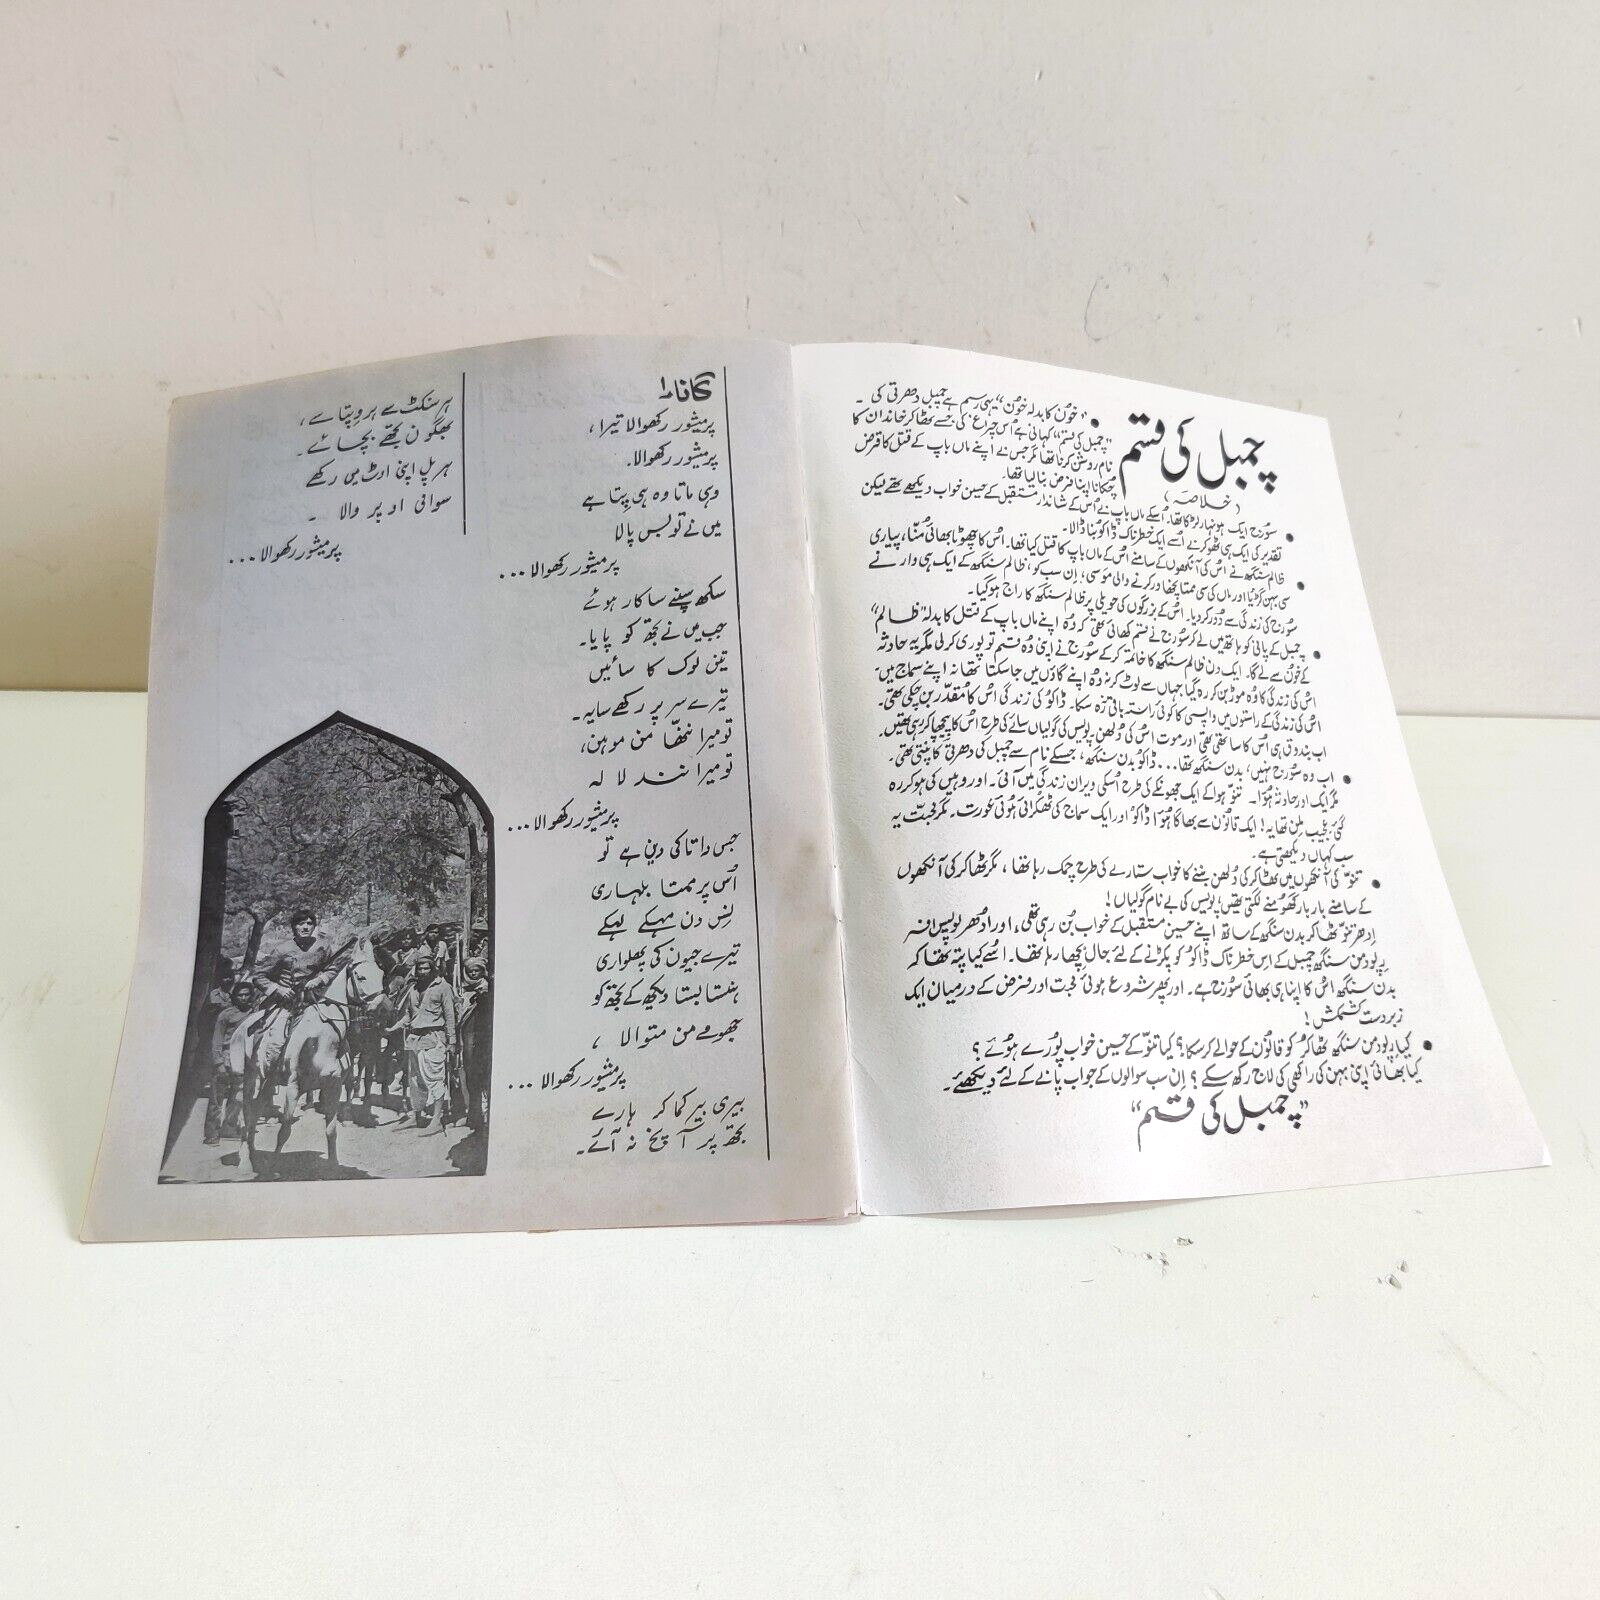 چمبل کی قسم
(خلاصہ)
• "خون کا بدلہ خون" یہی رسم ہے چمبل دھرتی کی ۔
"چمبل کی قسم" کہانی ہے اُس چراغ کی جسے ٹھاکر خاندان کا
نام روشن کرنا تھا مگر جس نے اپنے ماں باپ کے قتل کا قرض
چکانا اپنا فرض بنا لیا تھا۔
• سوُرج ایک ہونہار لڑکا تھا۔ اُسکے ماں باپ نے اُس کے شاندار مستقبل کے حسین خواب دیکھے تھے لیکن
تقدیر کی ایک ہی ٹھوکر نے اُسے ایک خطرناک ڈاکو بنا ڈالا۔
• ظالم سنگھ نے اس کی آنکھوں کے سامنے اُس کے ماں باپ کا قتل کیا تھا۔ اس کا چھوٹا بھائی مُنّا، پیاری
سی بہن گڑیا اور ماں کی سی ممتا نچھاور کرنے والی موسی؛ اِن سب کو، ظالم سنگھ کے ایک ہی وار نے
سوُرج کی زندگی سے دُور کر دیا۔ اُس کے بزرگوں کی حویلی پر ظالم سنگھ کا راج ہو گیا۔
• چمبل کے پانی کو ہاتھ میں لے کر سوُرج نے قسم کھائی تھی کہ وُہ اپنے ماں باپ کے قتل کا بدلہ "ظالم"
کے خون سے لے گا۔ ایک دن ظالم سنگھ کا خاتمہ کر کے سوُرج نے اپنی وُہ قسم تو پوری کر لی مگر یہ حادثہ
اس کی زندگی کا وُہ موڑ بن کر رہ گیا جہاں سے لوٹ کر نہ وُہ اپنے گاؤں میں جا سکتا تھا نہ اپنے سماج میں۔
اس کی زندگی کے راستوں میں واپسی کا کوئی راستہ باقی نہ رہ سکا۔ ڈاکو کی زندگی اُس کا مُقدّر بن چکی تھی۔
اب بندوق ہی اُس کا ساتھی تھی اور موت اُس کی دُلہن۔ پولیس کی گولیاں سائے کی طرح اُس کا پیچھا کر رہی تھیں۔
• اب وہ سوُرج نہیں، بدن سنگھ تھا... ڈاکو بدن سنگھ، جسکے نام سے چمبل کی دھرتی کانپتی تھی۔
مگر ایک اور حادثہ ہُوا۔ تنّو ہوا کے ایک جھونکے کی طرح اُسکی ویران زندگی میں آئی۔ اور وہیں کی ہو کر رہ
گئی؛ عجیب مِلن تھا یہ! ایک قانون سے بھاگا ہُوا ڈاکو اور ایک سماج کی ٹھکرائی ہُوئی عورت۔ مگر محبّت یہ
سب کہاں دیکھتی ہے۔
• تنّو کی آنکھوں میں ٹھاکر کی دُلہن بننے کا خواب ستارے کی طرح چمک رہا تھا، مگر ٹھاکر کی آنکھوں
کے سامنے بار بار گھومنے لگتی تھیں، پولیس کی بے نام گولیاں!
اِدھر تنّو ٹھاکر بدن سنگھ کے ساتھ اپنے حسین مستقبل کے خواب بُن رہی تھی، اور ادھر پولیس افسر
رِپودمن سنگھ چمبل کے اِس خطرناک ڈاکو کو پکڑنے کے لئے جال بچھا رہا تھا۔ اُسے کیا پتہ تھا کہ
بدن سنگھ اُس کا اپنا ہی بھائی سوُرج ہے۔ اور پھر شروع ہوئی محبت اور فرض کے درمیان ایک
زبردست کشمکش!
• کیا رِپودمن سنگھ ٹھاکر کو قانون کے حوالے کر سکا؟ کیا تنّو کے حسین خواب پورے ہُوئے؟
کیا بھائی اپنی بہن کی راکھی کی لاج رکھ سکے؟ اِن سب سوالوں کے جواب پانے کے لئے دیکھئے۔
"چمبل کی قسم"
گانا۱
پرمیشور رکھوالا تیرا،
پرمیشور رکھوالا۔
وہی ماتا وہ ہی پِتا ہے
میں نے تو بس پالا
پرمیشور رکھوالا...
سکھ سپنے ساکار ہوئے
جب میں نے تجھ کو پایا۔
تین لوک کا سائیں
تیرے سر پر رکھے سایہ۔
تو میرا ننھّا من موہن،
تو میرا نند لا لہ
پرمیشور رکھوالا...
جس داتا کی دین ہے تو
اُس پر ممتا بلہاری
نِس دن مہکے لہکے
تیرے جیون کی پھلواری
ہنستا بستا دیکھ کے تجھ کو
جھومے من متوالا ،
پرمیشور رکھوالا...
بیری بیر کما کر ہارے
تجھ پر آنچ نہ آئے۔
ہر سنکٹ سے ہر وپتا سے،
بھگون تجھے بچائے۔
ہر پل اپنی اوٹ میں رکھے
سوامی اوپر والا ۔
پرمیشور رکھوالا...